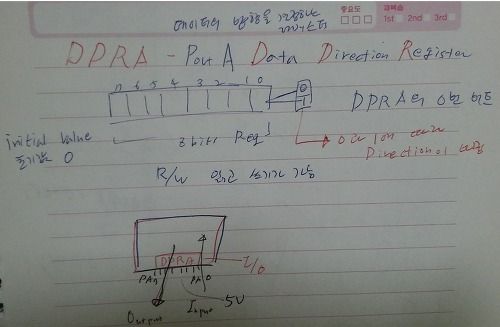 데이터의 방향을 결정하는
레지스터
중요도
1st 2nd 3rd
DDRA - Port A Data Direction Register
7 6 5 4 3 2 1 0
0
1
DDRA의 0번 비트
initial value
초기값 0
8 bits Reg
0과 1에 따라
Direction이 결정
R/W 읽고 쓰기가 가능
DDRA
I/O
PA7 PA0
Output Input 5V